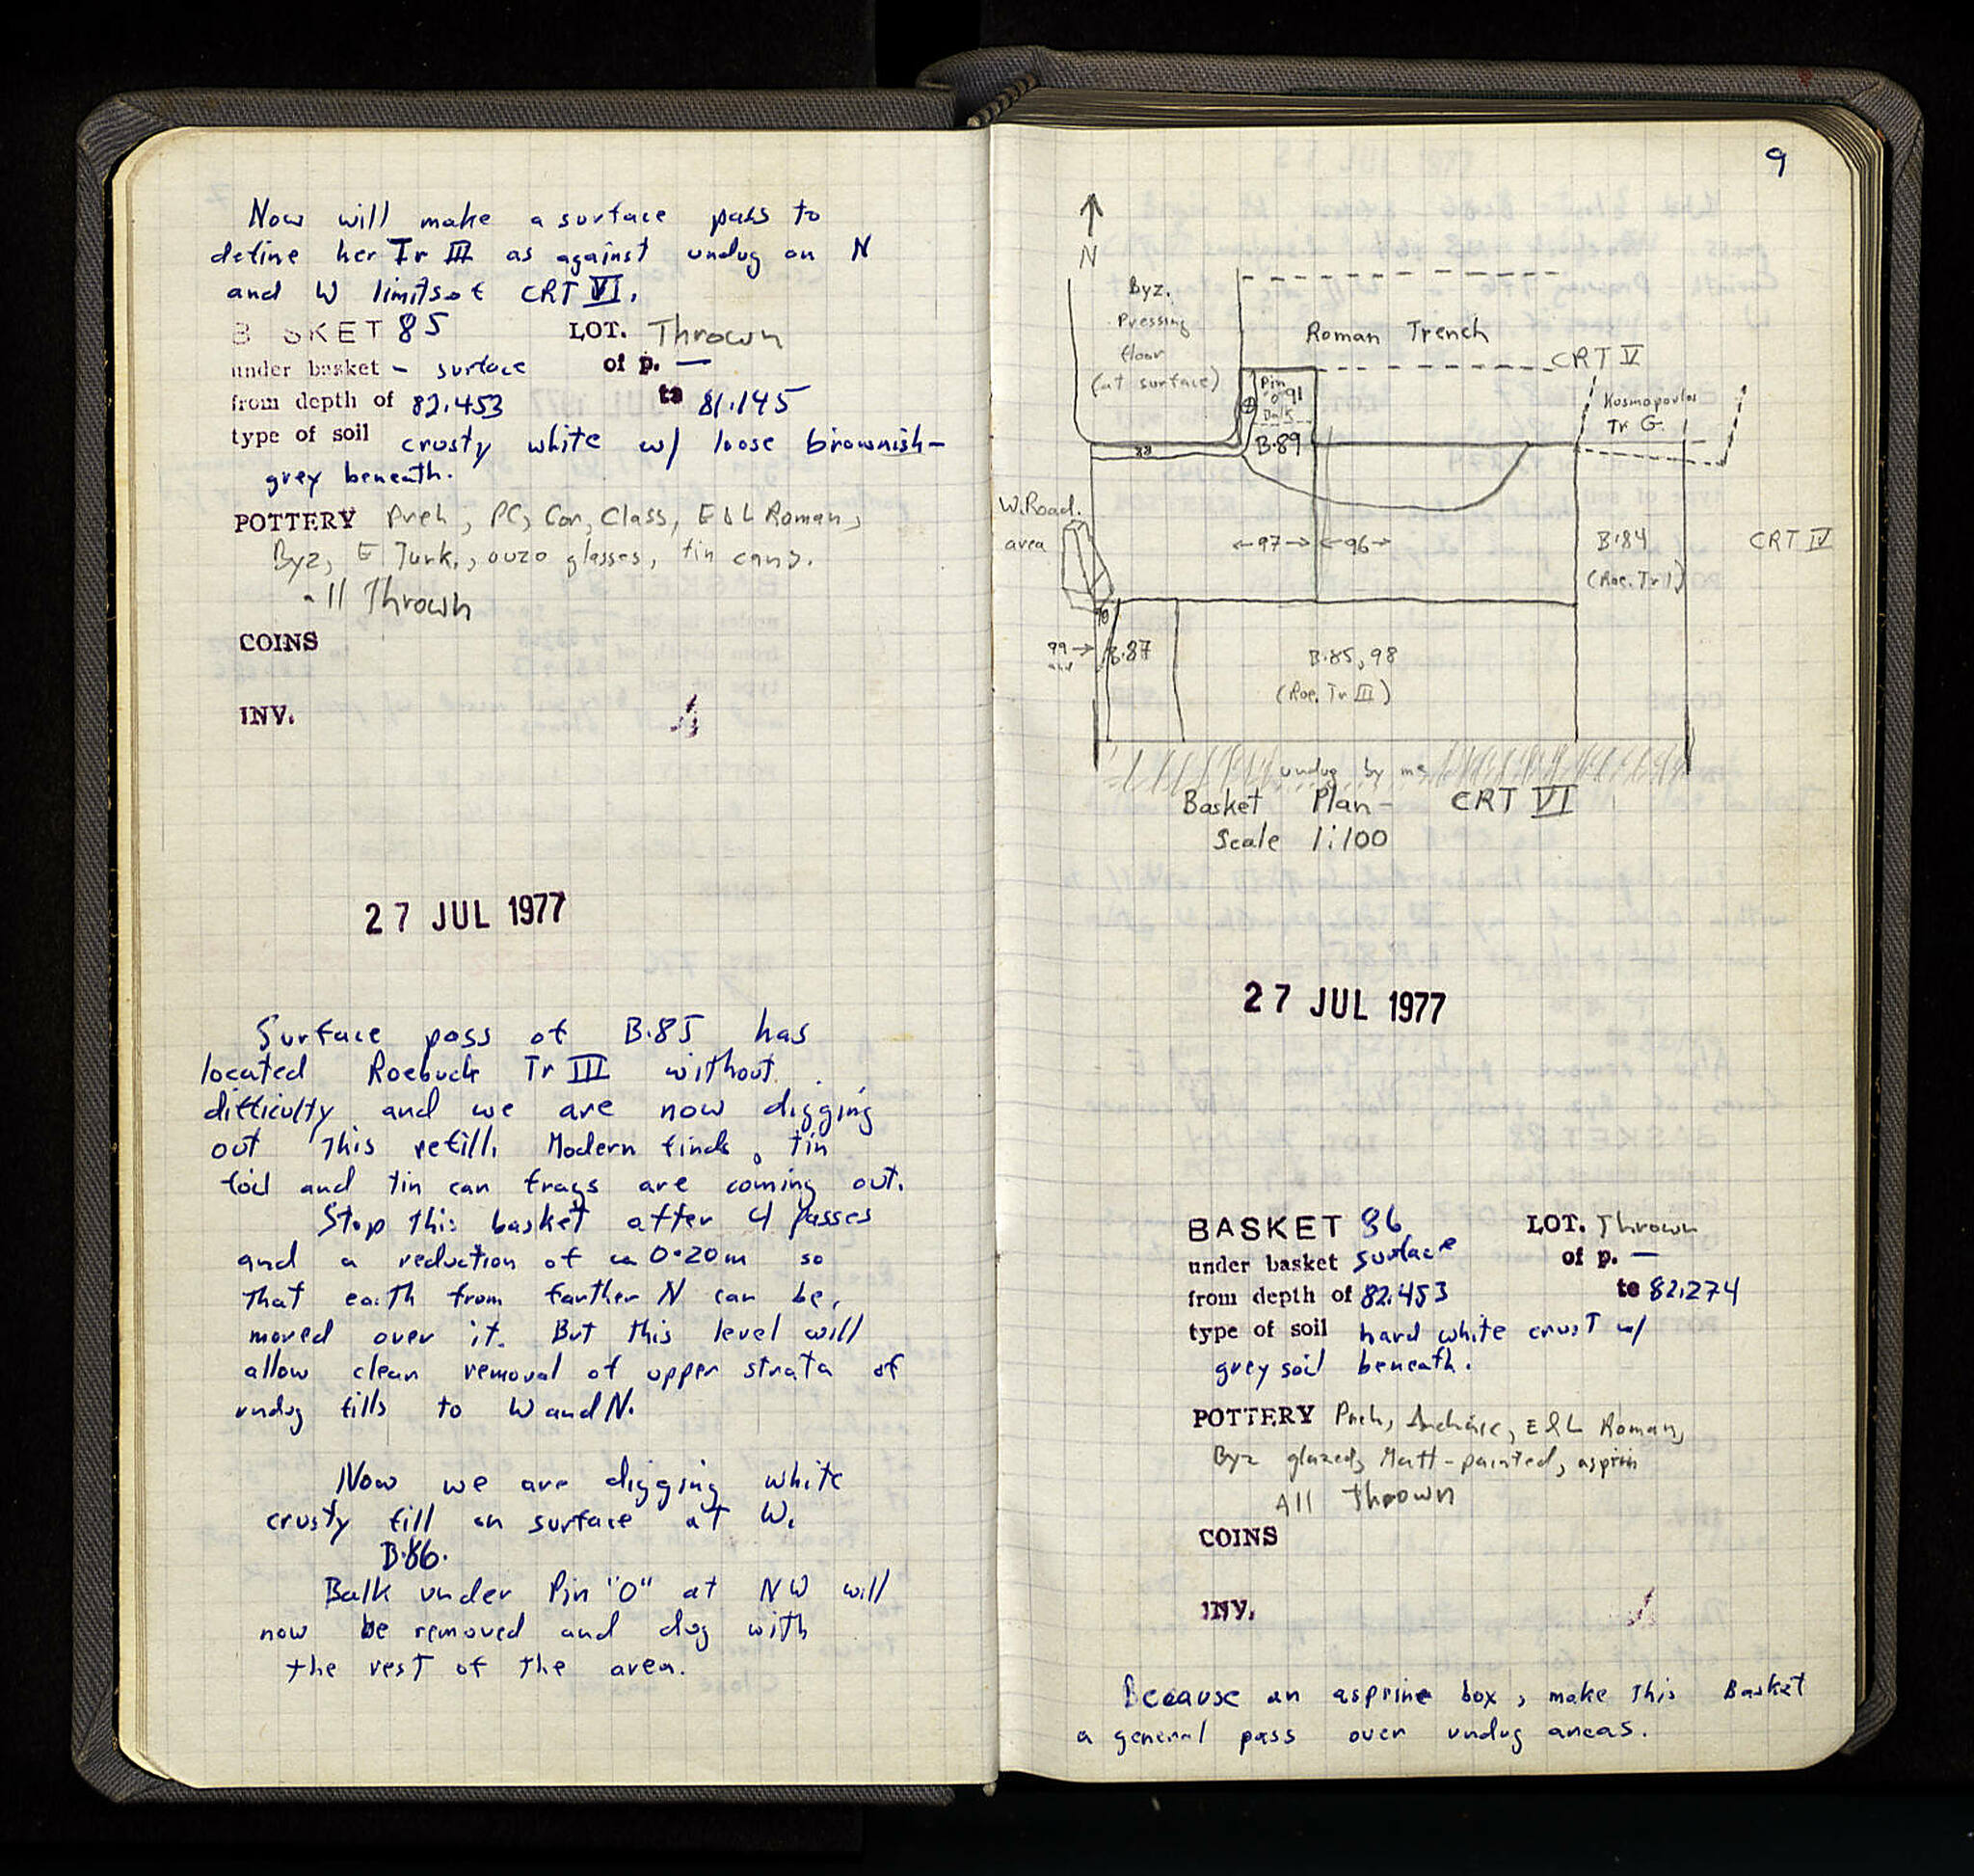 Now will make a surface pass to
define her Tr III as against undug on N
and W limits of CRT VI.
B SKET 85 LOT. Thrown
under basket - surface of p. —
from depth of 82.453 to 81.145
type of soil crusty white w/ loose brownish-
grey beneath.
POTTERY Preh, PC, Cor, Class, E&L Roman,
Byz, E Turk., ouzo glasses, tin cans.
all Thrown
COINS
INV.
27 JUL 1977
Surface pass of B.85 has
located Roebuck Tr III without
difficulty and we are now digging
out this refill. Modern finds, tin
foil and tin can frags are coming out.
Stop this basket after 4 passes
and a reduction of ca 0.20m so
that earth from farther N can be
moved over it. But this level will
allow clean removal of upper strata of
undug fills to W and N.
Now we are digging white
crusty fill on surface at W.
B.86.
Balk under Pin "O" at NW will
now be removed and dug with
the rest of the area.
9
N
Byz.
Pressing
floor
(at surface)
Roman Trench
CRT V
Pin
"O" 91
Balk
B.89
Kosmopoulos
Tr G.
88
W. Road.
area
←97→ ←96→
B.84
(Roe. Tr I)
CRT IV
90
99 →
B.87
B.85, 98
(Roe. Tr III)
undug by me
Basket Plan - CRT VI
Scale 1:100
27 JUL 1977
BASKET 86 LOT. Thrown
under basket surface of p. —
from depth of 82.453 to 82.274
type of soil hard white crust w/
grey soil beneath.
POTTERY Preh, Archaic, E&L Roman,
Byz glazed, Matt-painted, asprin
All Thrown
COINS
INV.
Because an asprine box, make this Basket
a general pass over undug areas.